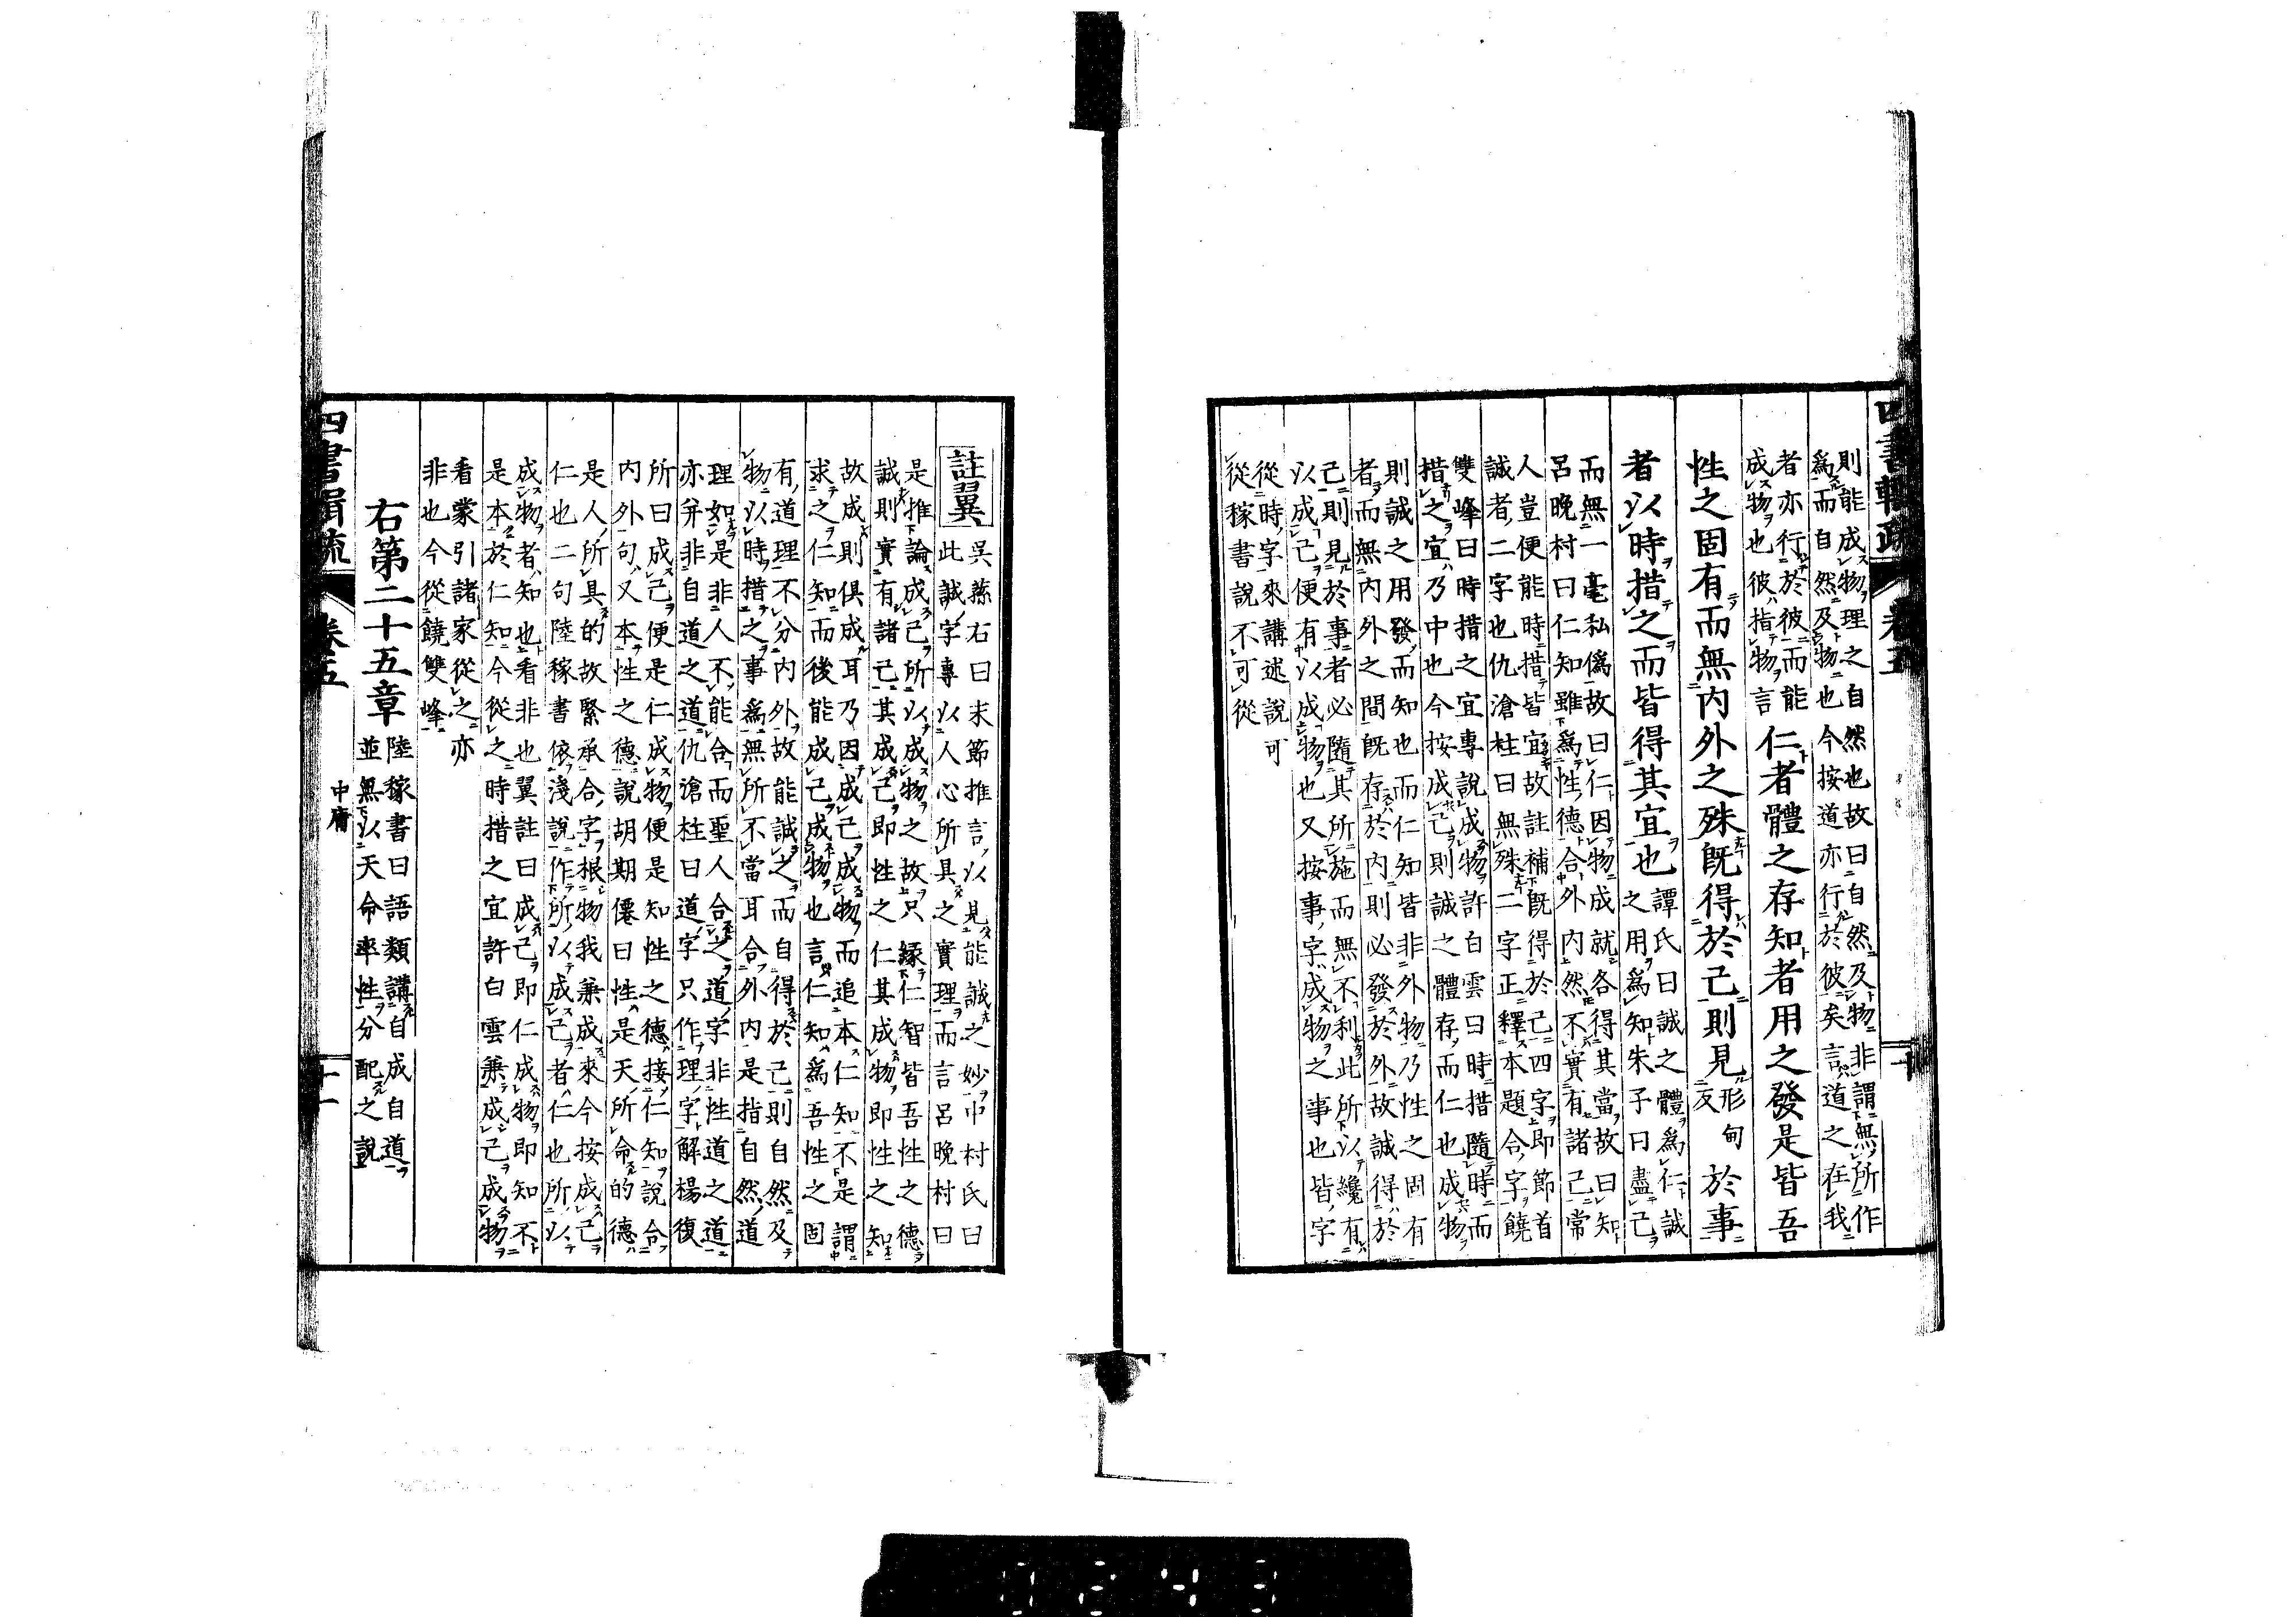 四書輯疏
卷五
十
則能成物理之自然也故曰自然及物非謂無所作
爲而自然及物也今按道亦行於彼矣言道之在我
者亦行於彼而能
成物也彼指物言
仁者體之存知者用之發是皆吾
性之固有而無內外之殊既得於己則見
形甸
反
於事
者以時措之而皆得其宜也
譚氏曰誠之體爲仁誠
之用爲知朱子曰盡己
而無一毫私僞故曰仁因物成就各得其當故曰知
呂晚村曰仁知雖爲性德合外內然不實有諸己常
人豈便能時措皆宜故註補既得於己四字即節首
誠者二字也仇滄柱曰無殊二字正釋本題合字饒
雙峰曰時措之宜專說成物許白雲曰時措隨時而
措之宜乃中也今按成己則誠之體存而仁也成物
則誠之用發而知也而仁知皆非外物乃性之固有
者而無內外之間既存於內則必發於外故誠得於
己則見於事者必隨其所施而無不利此所以纔有
以成己便有以成物也又按事字成物之事也皆字
從時字來講述說可
從稼書說不可從
註翼
吳蓀右曰末節推言以見能誠之妙中村氏曰
此誠字專以人心所具之實理而言呂晚村曰
是推論成己所以成物之故只緣仁智皆吾性之德
誠則實有諸己其成己即性之仁其成物即性之知
故成則俱成耳乃因成己成物而追本仁知不是謂
求之仁知而後能成己成物也言仁知爲吾性之固
有道理不分內外故能誠之而自得於己則自然及
物以時措之事爲無所不當耳合外內是指自然道
理如是非人不能合而聖人合之道字非性道之道
亦并非自道之道仇滄柱曰道字只作理字解楊復
所曰成己便是仁成物便是知性之德接仁知說合
內外句又本性之德說胡期僊曰性是天所命的德
是人所具的故緊承合字根物我兼成來今按成己
仁也二句陸稼書依淺說作所以成己者仁也所以
成物者知也看非也翼註曰成己即仁成物即知不
是本於仁知今從之時措之宜許白雲兼成己成物
看蒙引諸家從之亦
非也今從饒雙峰
右第二十五章
陸稼書曰語類講自成自道
並無以天命率性分配之說
四書輯疏
卷五
中庸
十一